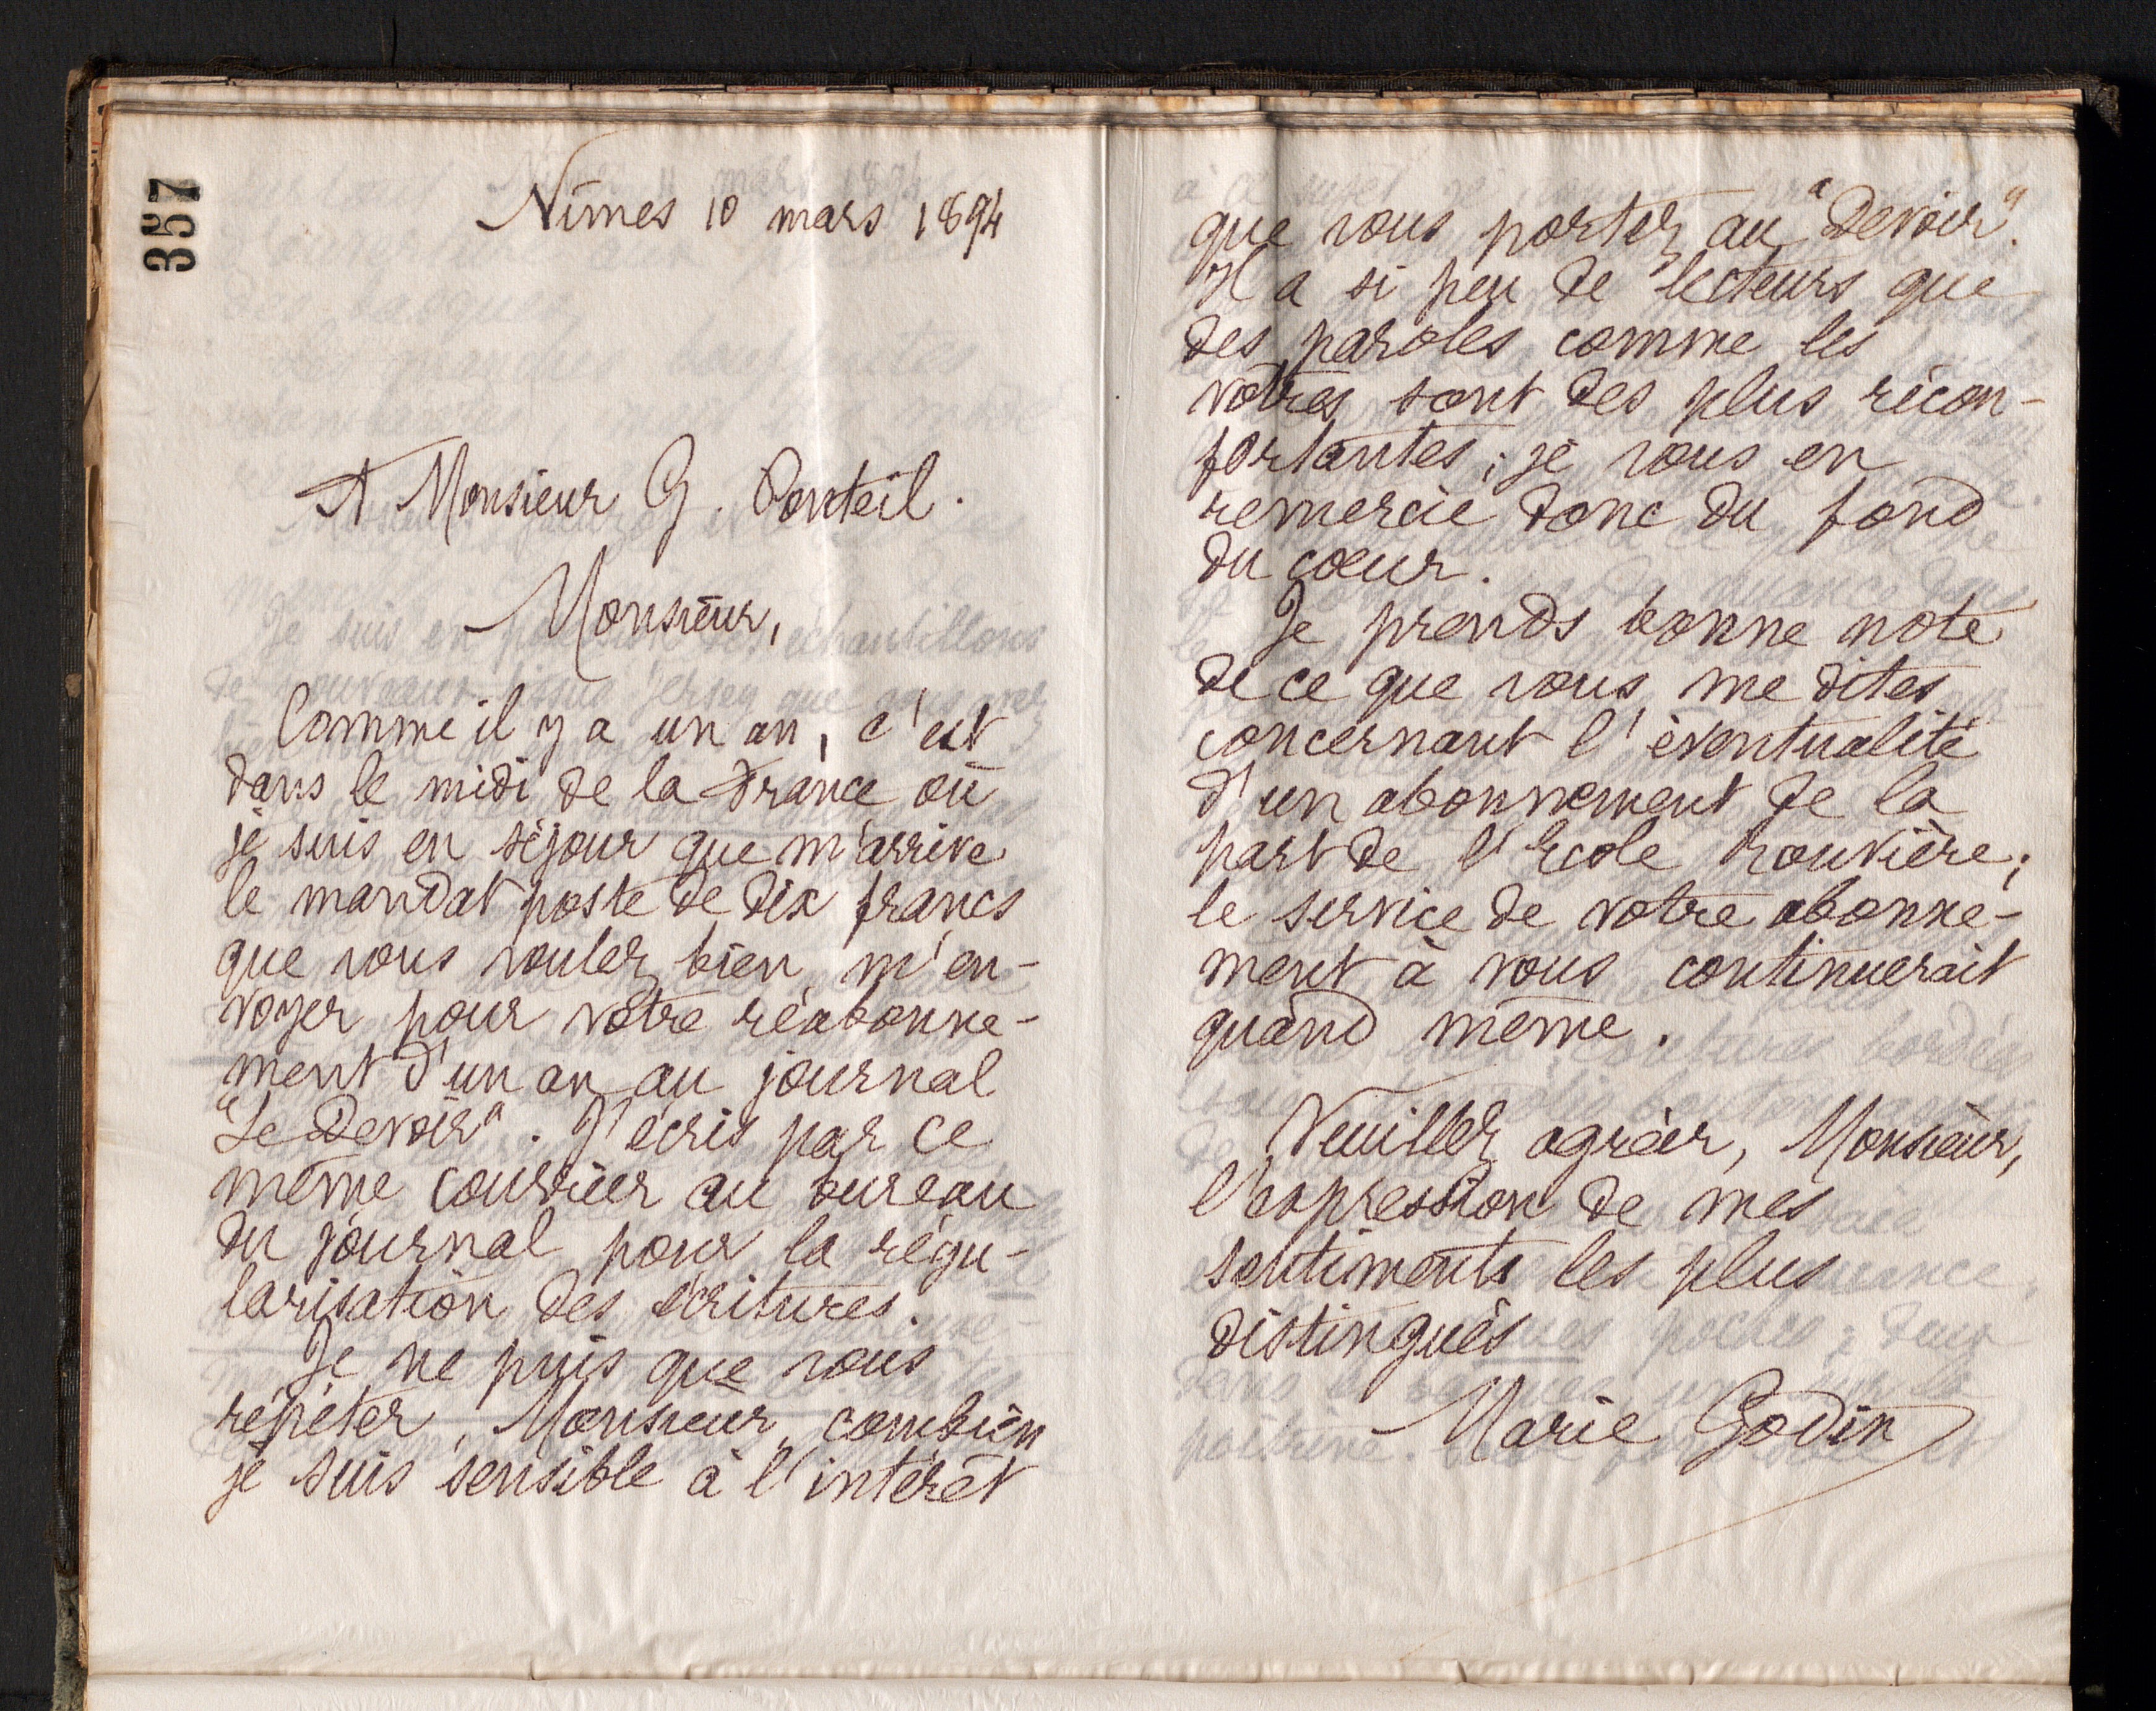 357
Nîmes 10 mars 1894
A Monsieur G. Ponteil.
Monsieur,
Comme il y a un an, c'est
dans le midi de la France où
je suis en séjour que m'arrive
le mandat poste de dix francs
que vous voulez bien m'en-
voyer pour votre réabonne-
ment d'un an au journal
"Le Devoir". J'écris par ce
même courrier au bureau
du journal pour la régu-
larisation des écritures.
Je ne puis que vous
répéter, Monsieur, combien
je suis sensible à l'intérêt
que vous portez au "Devoir".
Il a si peu de lecteurs que
des paroles comme les
vôtres sont des plus récon-
fortantes; je vous en
remercie donc du fond
du cœur.
Je prends bonne note
de ce que vous me dites
concernant l'éventualité
d'un abonnement de la
part de l'Ecole Rouvière;
le service de votre abonne-
ment à vous continuerait
quand même.
Veuillez agréer, Monsieur,
l'expression de mes
sentiments les plus
distingués
Marie Godin